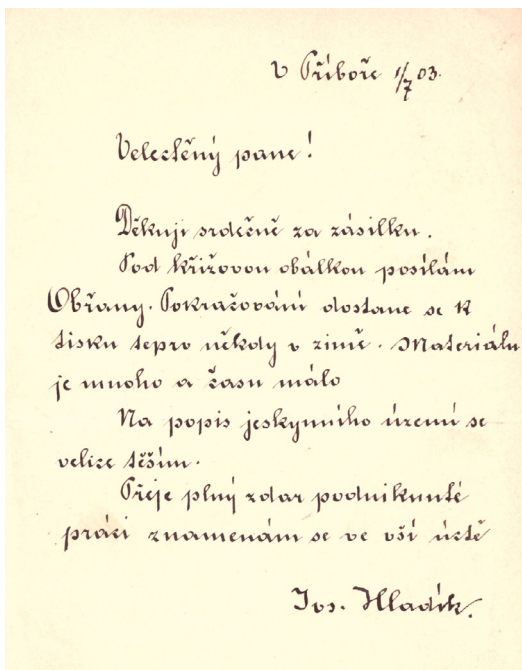 V Příboře 1/7 03.
Velectěný pane!
Děkuji srdečně za zásilku.
Pod křížovou obálkou posílám
Obřany. Pokračování dostane se k
tisku tepro někdy v zimě. Materiálu
je mnoho a času málo
Na popis jeskynního území se
velice těším.
Přeje plný zdar podniknuté
práci znamenám se ve vší úctě
Jos. Hladík.